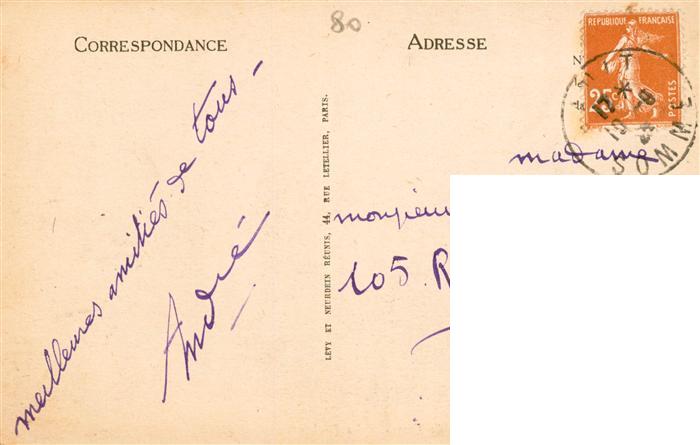 80
CORRESPONDANCE
ADRESSE
RÉPUBLIQUE FRANÇAISE
25c
POSTES
SOMME
meilleures amitiés de tous -
André
LÉVY ET NEURDEIN RÉUNIS, 44, RUE LETELLIER, PARIS.
madame
monsieur
105. R